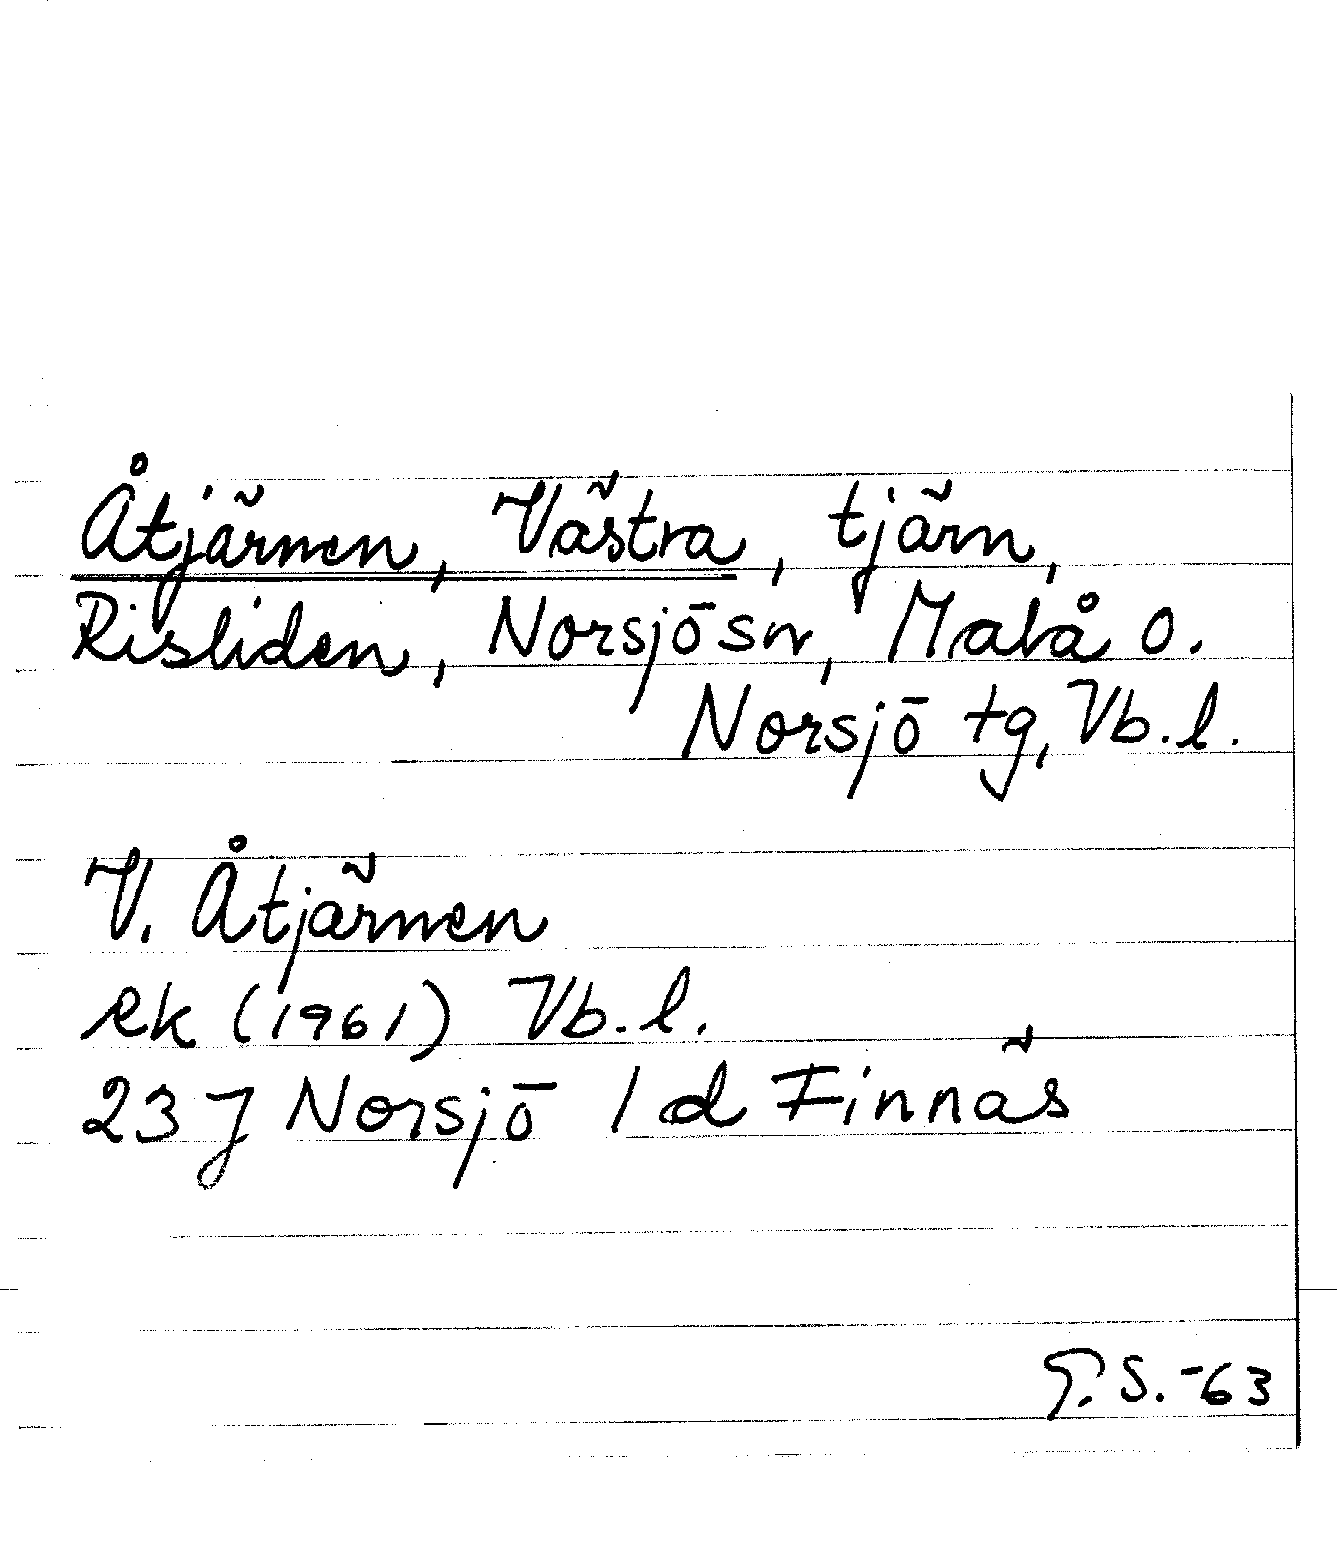 Åtjärnen, Västra, tjärn,
Risliden, Norsjö sn, Malå o.
Norsjö tg, Vb. l.
V. Åtjärnen
ek (1961) Vb. l.
23 J Norsjö 1 d Finnäs
S. -63